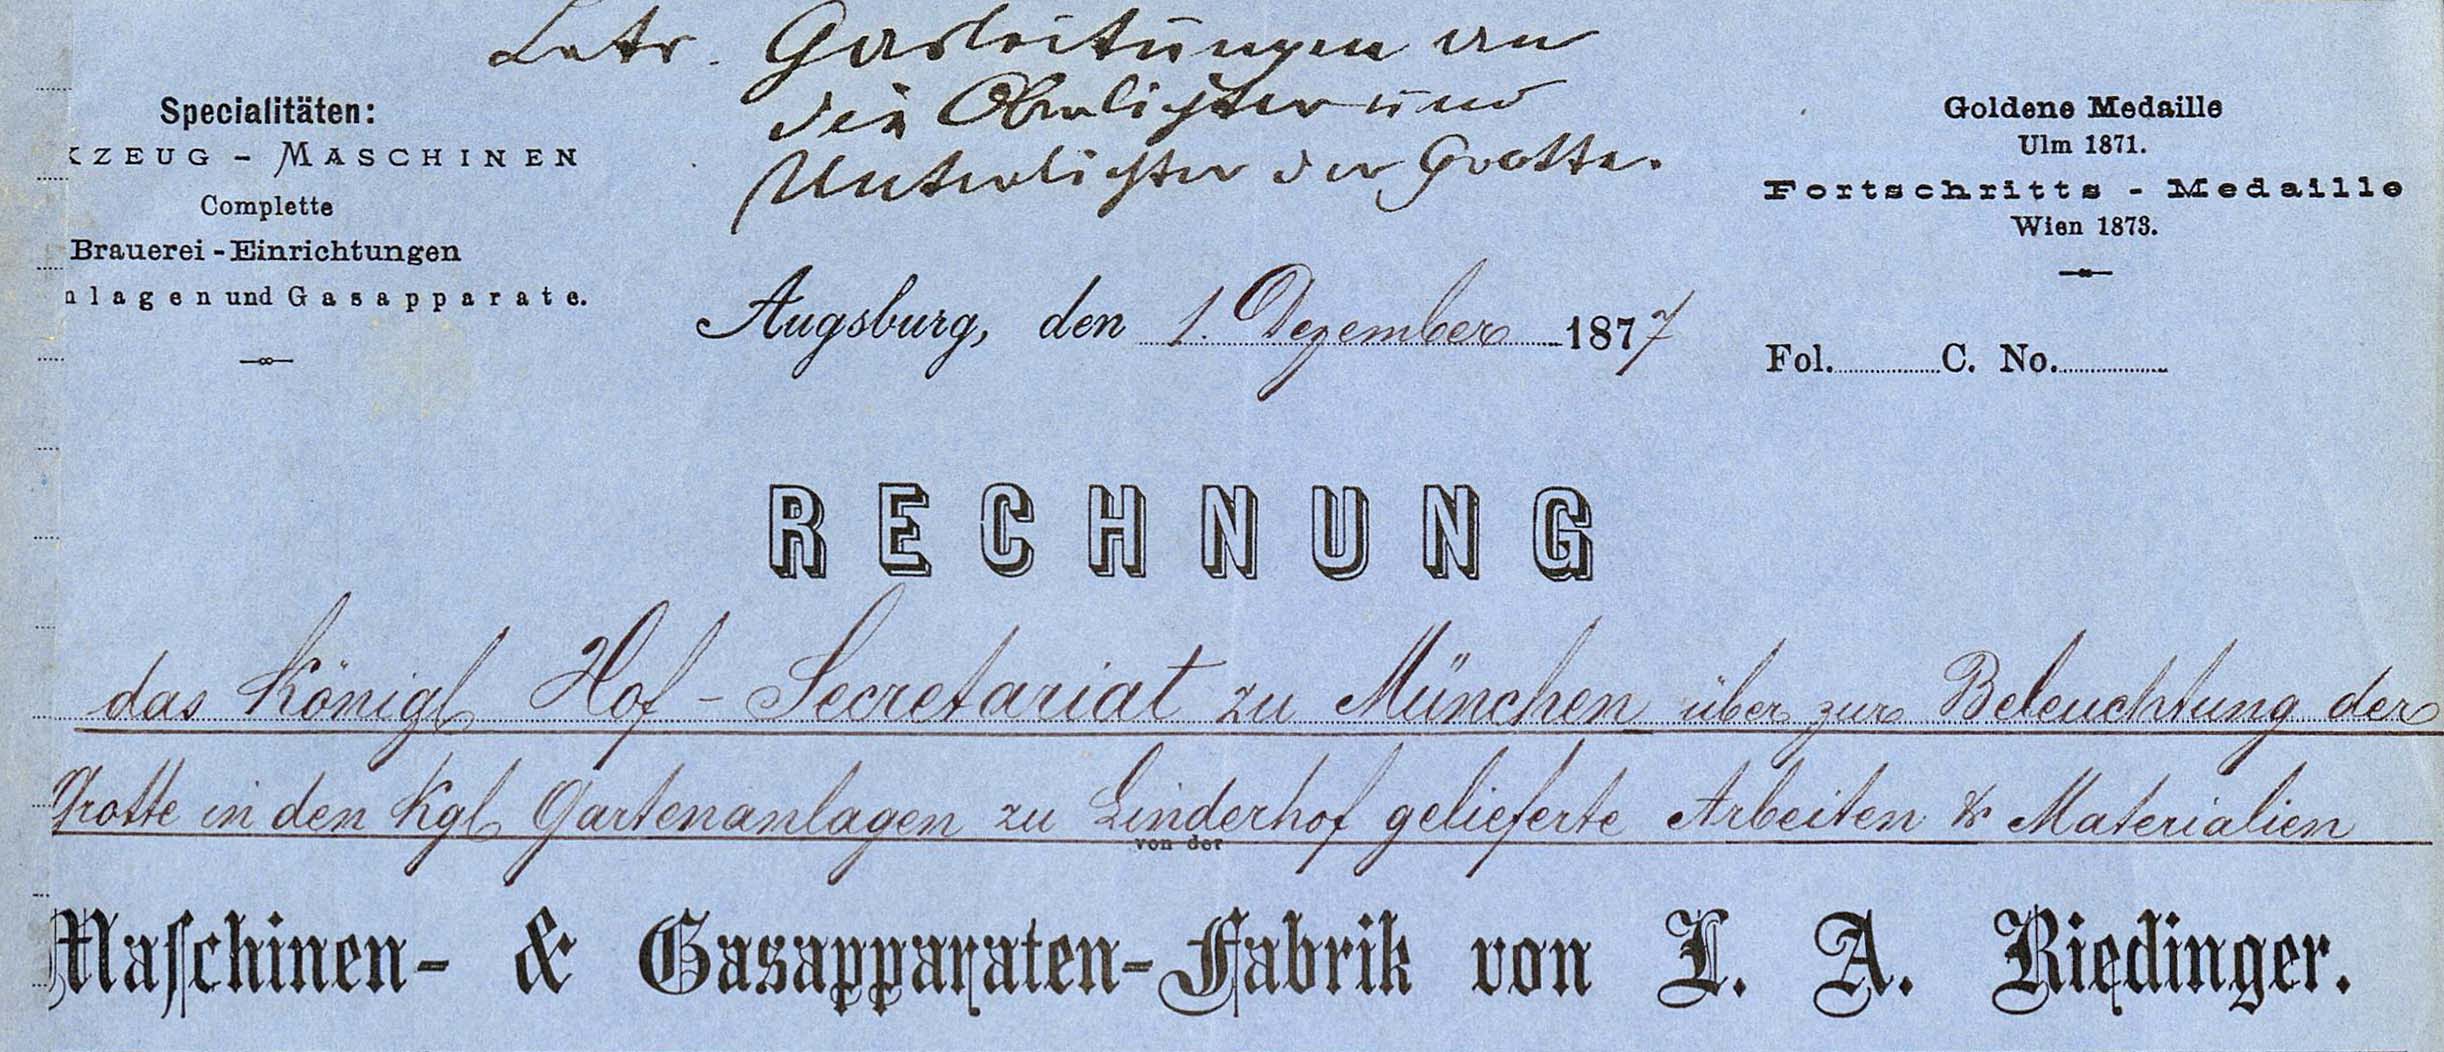 Betr. Gasleitungen an
die Oberlichter und
Unterlichter der Grotte.
Specialitäten:
KZEUG - MASCHINEN
Complette
Brauerei - Einrichtungen
nlagen und Gasapparate.
Goldene Medaille
Ulm 1871.
Fortschritts - Medaille
Wien 1873.
Augsburg, den 1. Dezember 1877
Fol. C. No.
RECHNUNG
das Königl Hof - Secretariat zu München über zur Beleuchtung der
Grotte in den Kgl Gartenanlagen zu Linderhof gelieferte Arbeiten & Materialien
von der
Maſchinen- & Gasapparaten-Fabrik von L. A. Riedinger.